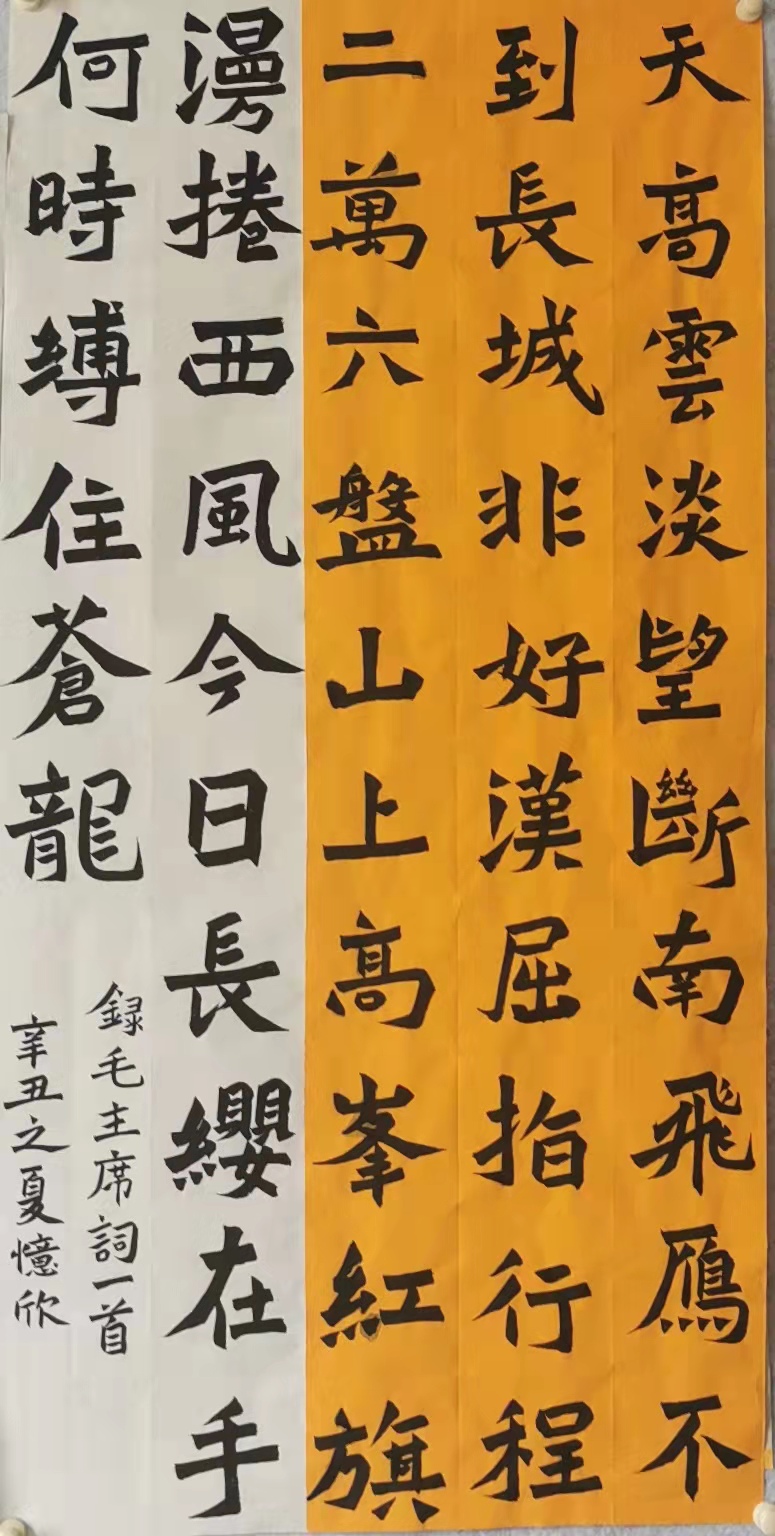 天高雲淡望斷南飛雁不
到長城非好漢屈指行程
二萬六盤山上高峯紅旗
漫捲西風今日長纓在手
何時縛住蒼龍
録毛主席詞一首
辛丑之夏憶欣